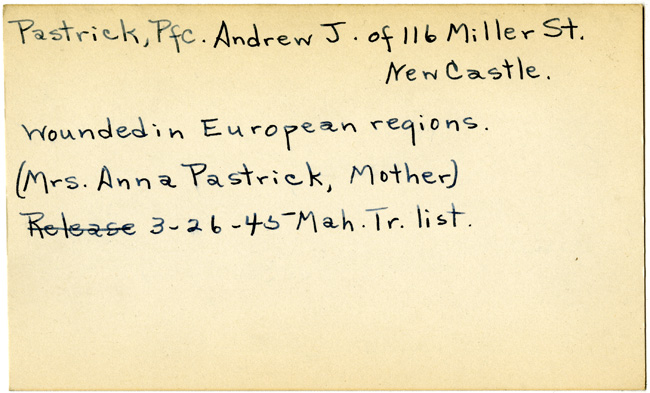 Pastrick, Pfc. Andrew J. of 116 Miller St.
New Castle.
Wounded in European regions.
(Mrs. Anna Pastrick, Mother)
Release 3-26-45 Mah. Tr. list.